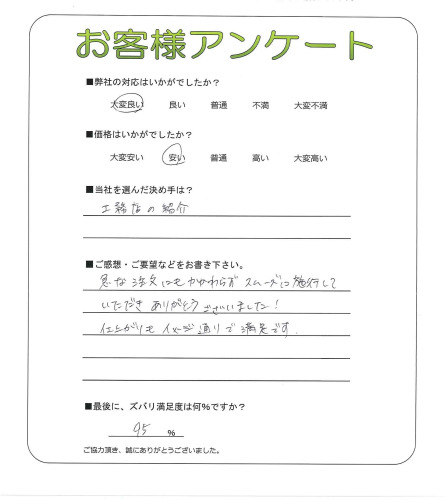 お客様アンケート
■弊社の対応はいかがでしたか？
大変良い 良い 普通 不満 大変不満
■価格はいかがでしたか？
大変安い 安い 普通 高い 大変高い
■当社を選んだ決め手は？
工務店の紹介
■ご感想・ご要望などをお書き下さい。
急な注文にもかかわらず スムーズに施行して
いただき ありがとうございました！
仕上がりも イメージ通りで 満足です.
■最後に、ズバリ満足度は何%ですか？
95 %
ご協力頂き、誠にありがとうございました。